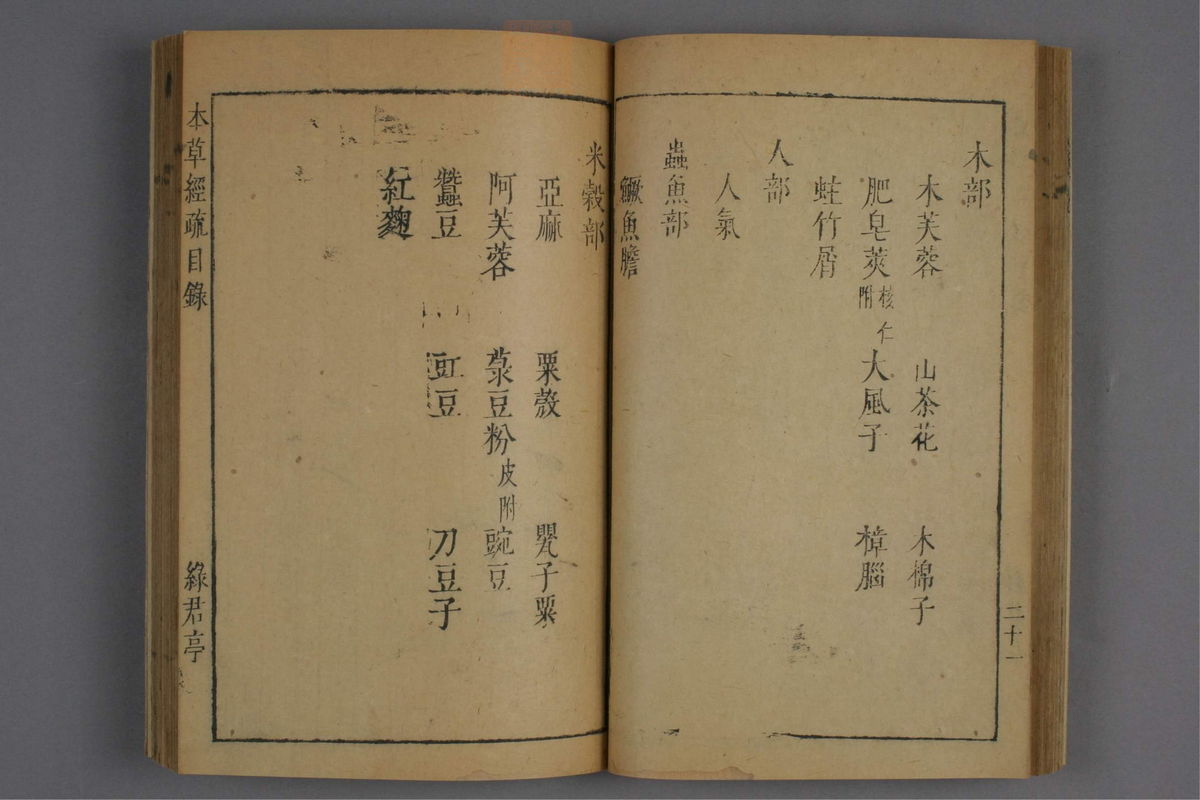 木部
木芙蓉 山茶花 木棉子
肥皂莢核仁附 大風子 樟腦
蛀竹屑
人部
人氣
蟲魚部
鱖魚膽
二十一
米穀部
亞麻 粟殼 甖子粟
阿芙蓉 菉豆粉皮附 豌豆
蠶豆 豇豆 刀豆子
紅麴
本草經疏目錄 綠君亭